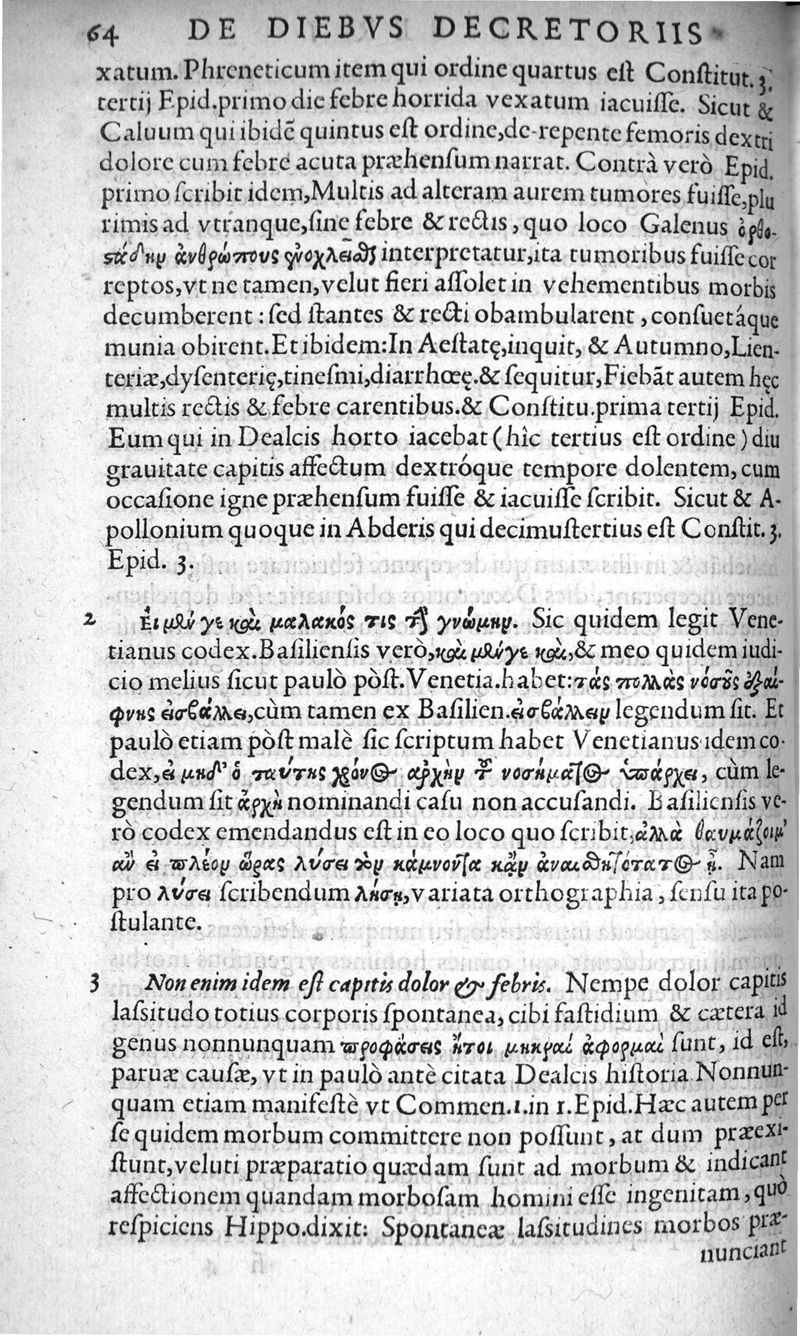 64 DE DIEBVS DECRETORIIS
xatum. Phreneticum item qui ordine quartus est Constitut. 3.
tertij Epid. primo die febre horrida vexatum iacuisse. Sicut &
Caluum qui ibidē quintus est ordine, de-repente femoris dextri
dolore cum febre acuta præhensum narrat. Contrà verò Epid.
primo scribit idem, Multis ad alteram aurem tumores fuisse, plu
rimis ad vtranque, sine febre & rectis, quo loco Galenus ὀρθο-
στάδην ἀνθρώπους interpretatur, ita tumoribus fuisse cor
reptos, vt ne tamen, velut fieri assolet in vehementibus morbis
decumberent: sed stantes & recti obambularent, consuetáque
munia obirent. Et ibidem: In Aestatę, inquit, & Autumno, Lien-
teriæ, dysenterię, tinesmi, diarrhœę. & sequitur, Fiebāt autem hęc
multis rectis & febre carentibus. & Constitu. prima tertij Epid.
Eum qui in Dealcis horto iacebat (hìc tertius est ordine) diu
grauitate capitis affectum dextróque tempore dolentem, cum
occasione igne præhensum fuisse & iacuisse scribit. Sicut & A-
pollonium quoque in Abderis qui decimustertius est Constit. 3.
Epid. 3.
2 Εἰ μὲν γε καὶ μαλακός τις τὴν γνώμην. Sic quidem legit Vene-
tianus codex. Basiliensis verò, καὶ μὲν γε καὶ, & meo quidem iudi-
cio melius sicut paulò pòst. Venetia. habet: τὰς πολλὰς νόσους ἐξαί-
φνης εἰσβάλλει, cùm tamen ex Basilien. εἰσβάλλειν legendum sit. Et
paulò etiam pòst malè sic scriptum habet Venetianus idem co-
dex, εἰ μηδ' ὁ ταύτης χρόνος ἀρχὴν τοῦ νοσήματος ὑπάρχει, cùm le-
gendum sit ἀρχὴ nominandi casu non accusandi. Basiliensis ve-
rò codex emendandus est in eo loco quo scribit, ἀλλὰ θαυμάζοιμ'
ἂν εἰ πλέον ὥρας λύσει τὸν κάμνοντα κἂν ἀναισθητότατος ᾖ. Nam
pro λύσει scribendum λήσῃ, variata orthographia, sensu ita po-
stulante.
3 Non enim idem est capitis dolor & febris. Nempe dolor capitis
lassitudo totius corporis spontanea, cibi fastidium & cætera id
genus nonnunquam προφάσεις ἤτοι μικραὶ ἀφορμαὶ sunt, id est,
paruæ causæ, vt in paulò antè citata Dealcis historia Nonnun-
quam etiam manifestè vt Commen. 1. in 1. Epid. Hæc autem per
se quidem morbum committere non possunt, at dum præexi-
stunt, veluti præparatio quædam sunt ad morbum & indicant
affectionem quandam morbosam homini esse ingenitam, quò
respiciens Hippo. dixit: Spontaneæ lassitudines morbos præ-
nunciant